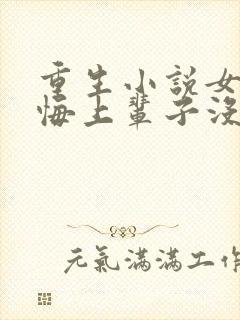 重生小說女
悔上輩子沒
元氣滿滿工作